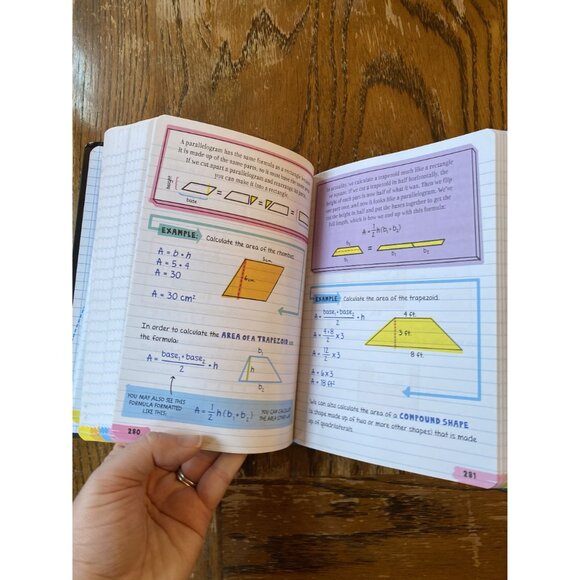 A parallelogram has the same formula as a rectangle
it is made up of the same parts, so it must have the same
If we cut apart a parallelogram and rearrange its parts,
you can make it into a rectangle.
height
base
EXAMPLE: Calculate the area of the rhombus.
A = b • h
A = 5 • 6
A = 30
A = 30 cm²
5 cm
6 cm
In order to calculate the AREA OF A TRAPEZOID
the formula:
A = base₁ + base₂ / 2 • h
b₁
h
b₂
YOU MAY ALSO SEE THIS
FORMULA FORMATTED
LIKE THIS:
A = 1/2 h (b₁ + b₂)
YOU CAN CALCULATE
THE AREA
280
we calculate a trapezoid much like a rectangle
If we cut a trapezoid in half horizontally, the
height of each part is now half of what it was. Then we flip
one part over, and now it looks like a parallelogram. We've
cut the height in half and put the bases together to get the
full length, which is how we end up with this formula:
A = 1/2 h (b₁ + b₂)
b₁
b₂
=
b₂
b₁
EXAMPLE: Calculate the area of the trapezoid.
A = base₁ + base₂ / 2 • h
A = 4 + 8 / 2 x 3
A = 12 / 2 x 3
A = 6 x 3
A = 18 ft²
4 ft.
3 ft.
8 ft.
We can also calculate the area of a COMPOUND SHAPE
(a shape made up of two or more other shapes) that is made
up of quadrilaterals.
281